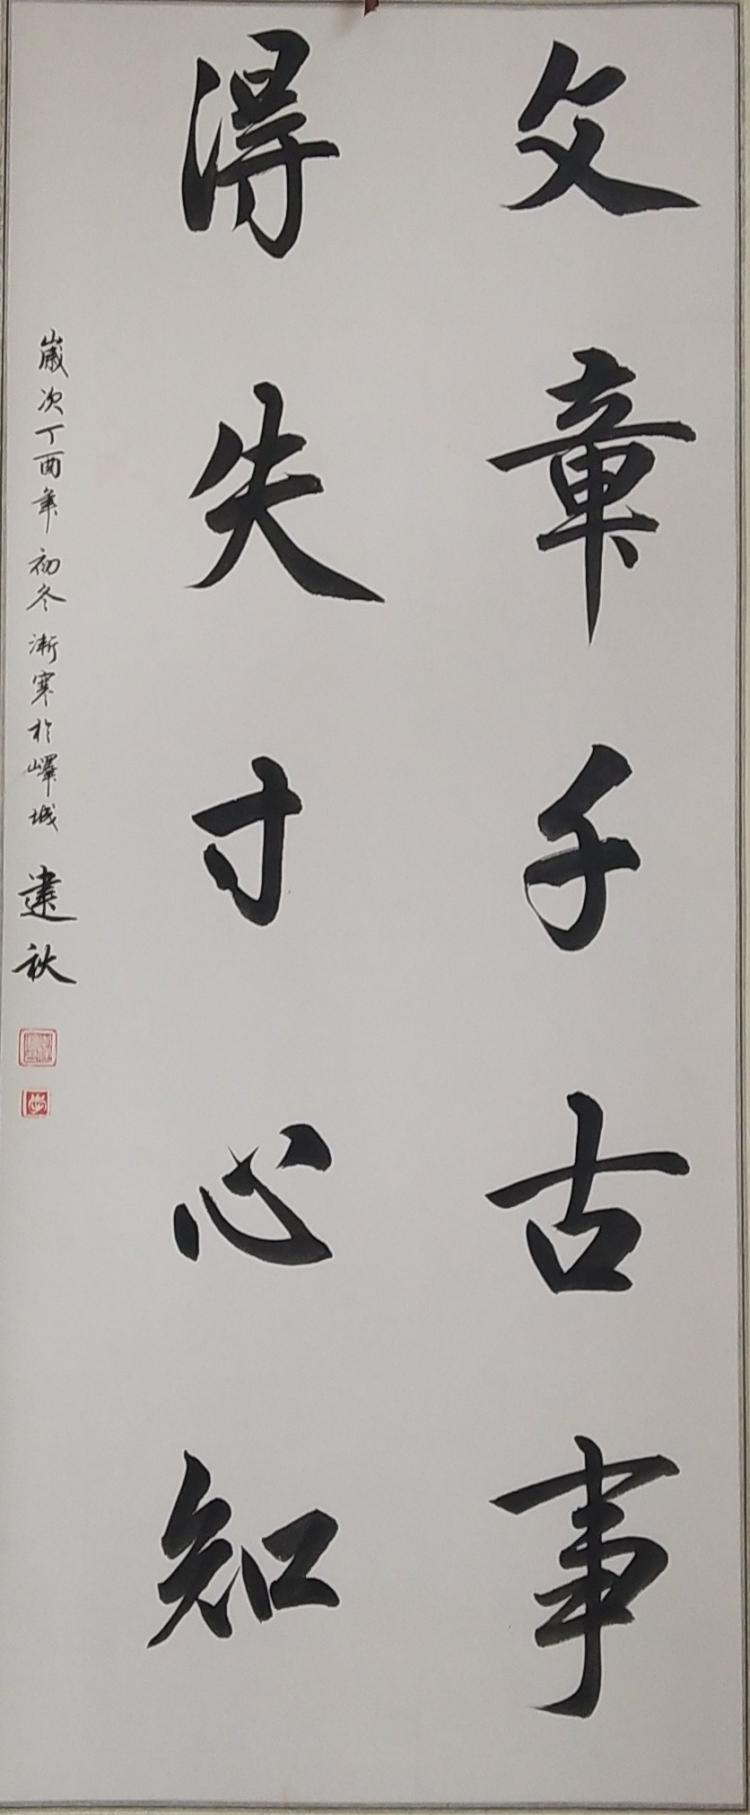 文章千古事
得失寸心知
歲次丁酉年初冬漸寒於嶧城
建秋